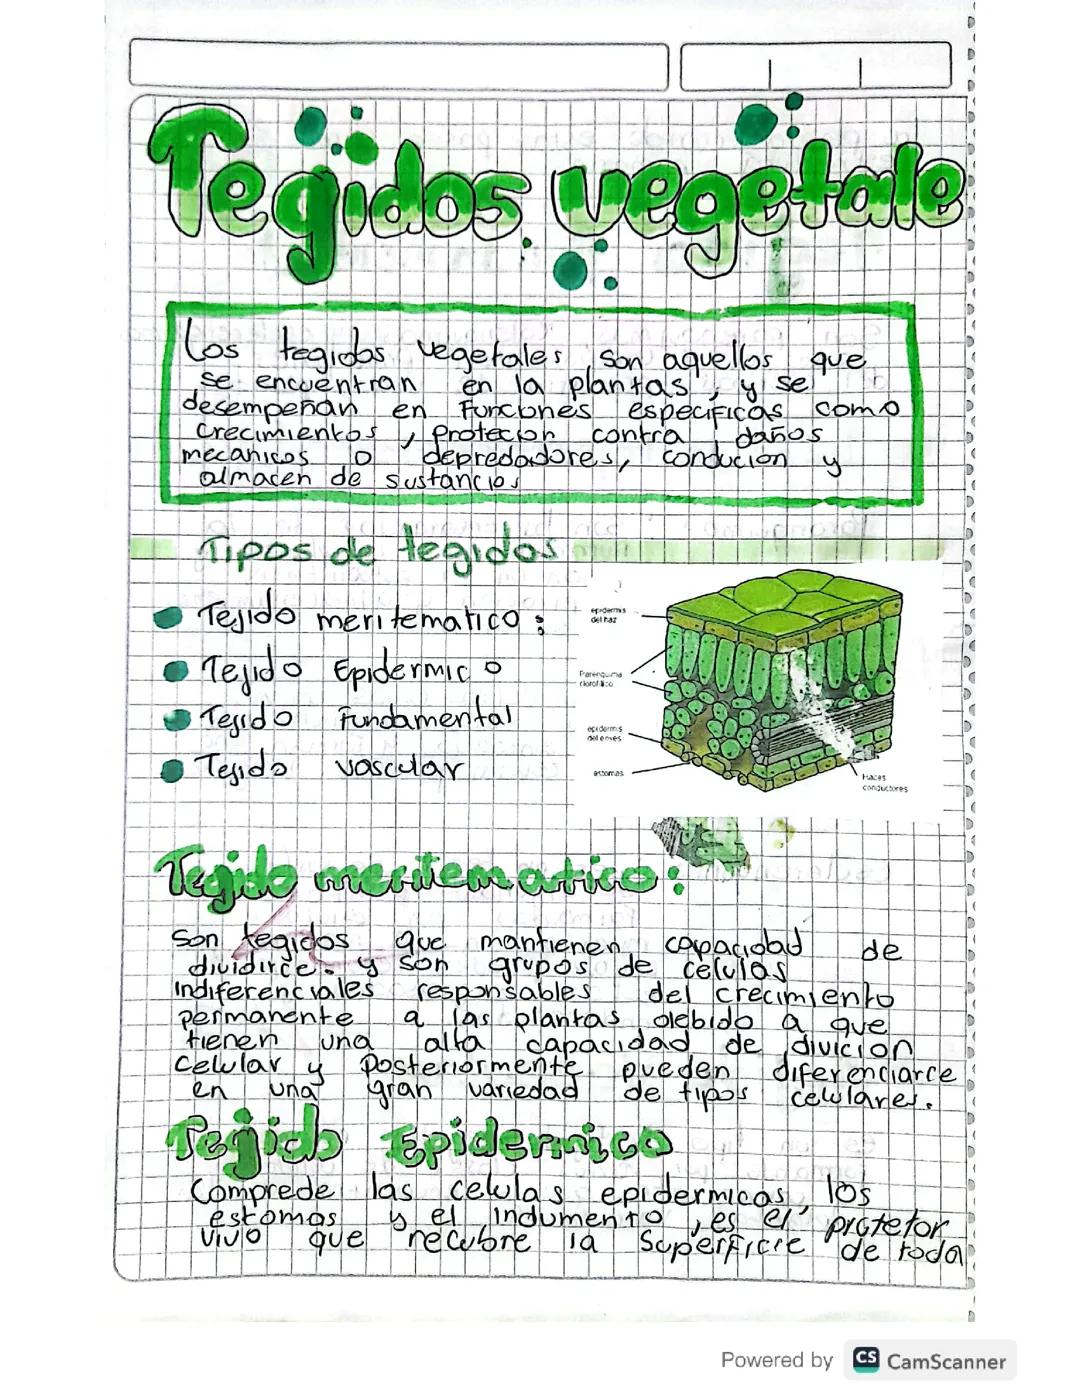 Tegidos vegetale
Los tegidos vegetales son aquellos que
se encuentran en la plantas, y se
desempeñan en funciones especificas como
crecimientos, protecion contra daños
mecanicos o depredadores, conducion y
almacen de sustancias
Tipos de tegidos
Tejido meritematico:
Tejido Epidermico
Tejido Fundamental
Tejido vascular
epidermis
del haz
Parenquima
clorofílico
epidermis
del envés
estomas
Haces
conductores
Tegido meritematico:
Son tegidos que mantienen capacidad de
dividirce. y son grupos de celulas
indiferenciales responsables del crecimiento
permanente a las plantas debido a que
tienen una alta capacidad de divicion
celular y posteriormente pueden diferenciarce
en una gran variedad de tipos celulares.
Tegido Epidermico
Comprede las celulas epidermicas, los
estomas y el indumento, es el protetor
vivo que recubre la superficie de toda
Powered by CS CamScanner